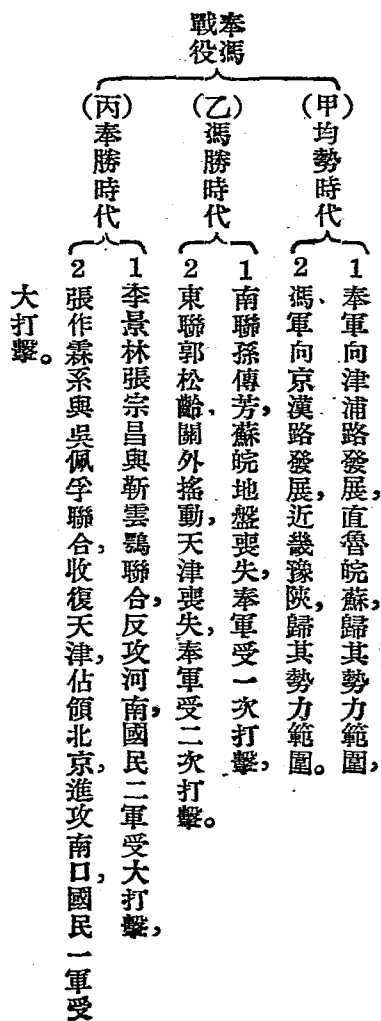 奉馮
戰役
(甲)均勢時代
1奉軍向津浦路發展,直魯皖蘇,歸其勢力範圍,
2馮軍向京漢路發展,近畿豫陝,歸其勢力範圍。
(乙)馮勝時代
1南聯孫傳芳,蘇皖地盤喪失,奉軍受一次打擊,
2東聯郭松齡、關外搖動,天津喪失,奉軍受二次打擊。
(丙)奉勝時代
1李景林張宗昌與靳雲鶚聯合,反攻河南,國民二軍受大打擊,
2張作霖系與吳佩孚聯合,收復天津,佔領北京,進攻南口,國民一軍受
大打擊。